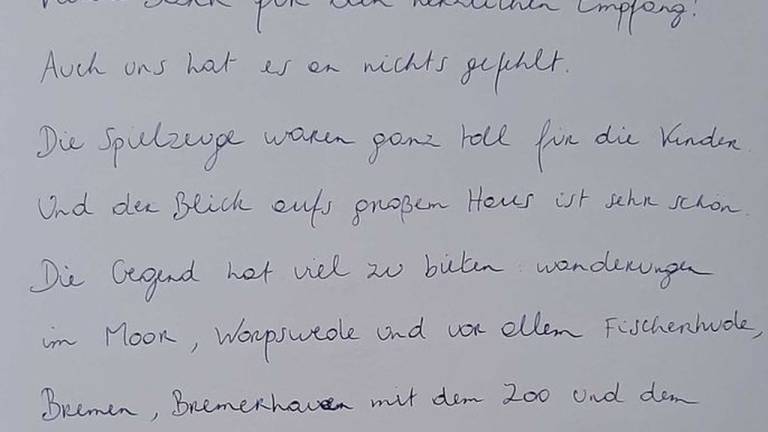 Vielen Dank für den herzlichen Empfang!
Auch uns hat es an nichts gefehlt.
Die Spielzeuge waren ganz toll für die Kinder.
Und der Blick aufs großem Haus ist sehr schön.
Die Gegend hat viel zu bieten: wanderungen
im Moor, Worpswede und vor allem Fischerhude,
Bremen, Bremerhaven mit dem Zoo und dem